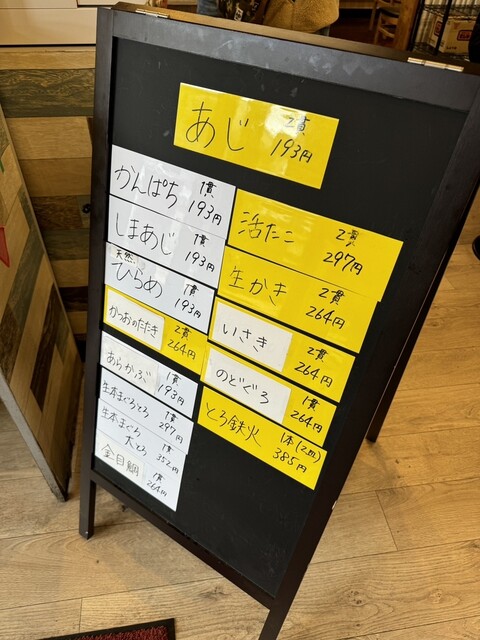 あじ 2貫 193円
かんぱち 1貫 193円
しまあじ 1貫 193円
天然 ひらめ 1貫 193円
かつおのたたき 2貫 264円
あらかぶ 1貫 193円
生本まぐろとろ 1貫 297円
生本まぐろ大とろ 1貫 352円
金目鯛 1貫 264円
活たこ 2貫 297円
生かき 2貫 264円
いさき 2貫 264円
のどぐろ 1貫 264円
とろ鉄火 1本(2皿) 385円